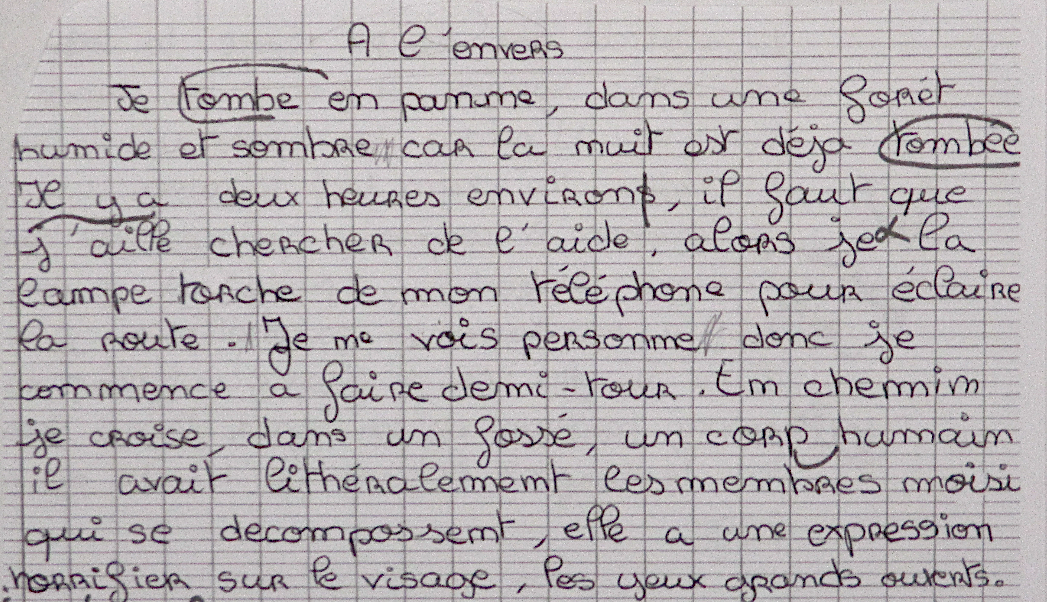 A l'envers
Je tombe en panne, dans une forêt
humide et sombre car la nuit est déja tombée
Je y a deux heures environs, il faut que
j'aille chercher de l'aide, alors je la
lampe torche de mon téléphone pour éclaire
la route. Je ne vois personne donc je
commence a faire demi-tour. En chemnin
je croise, dans un fossé, un corp humain
il avait lithéralemment les membres moisi
qui se decompossent, elle a une expression
horrifier sur le visage, les yeux grands ouverts.